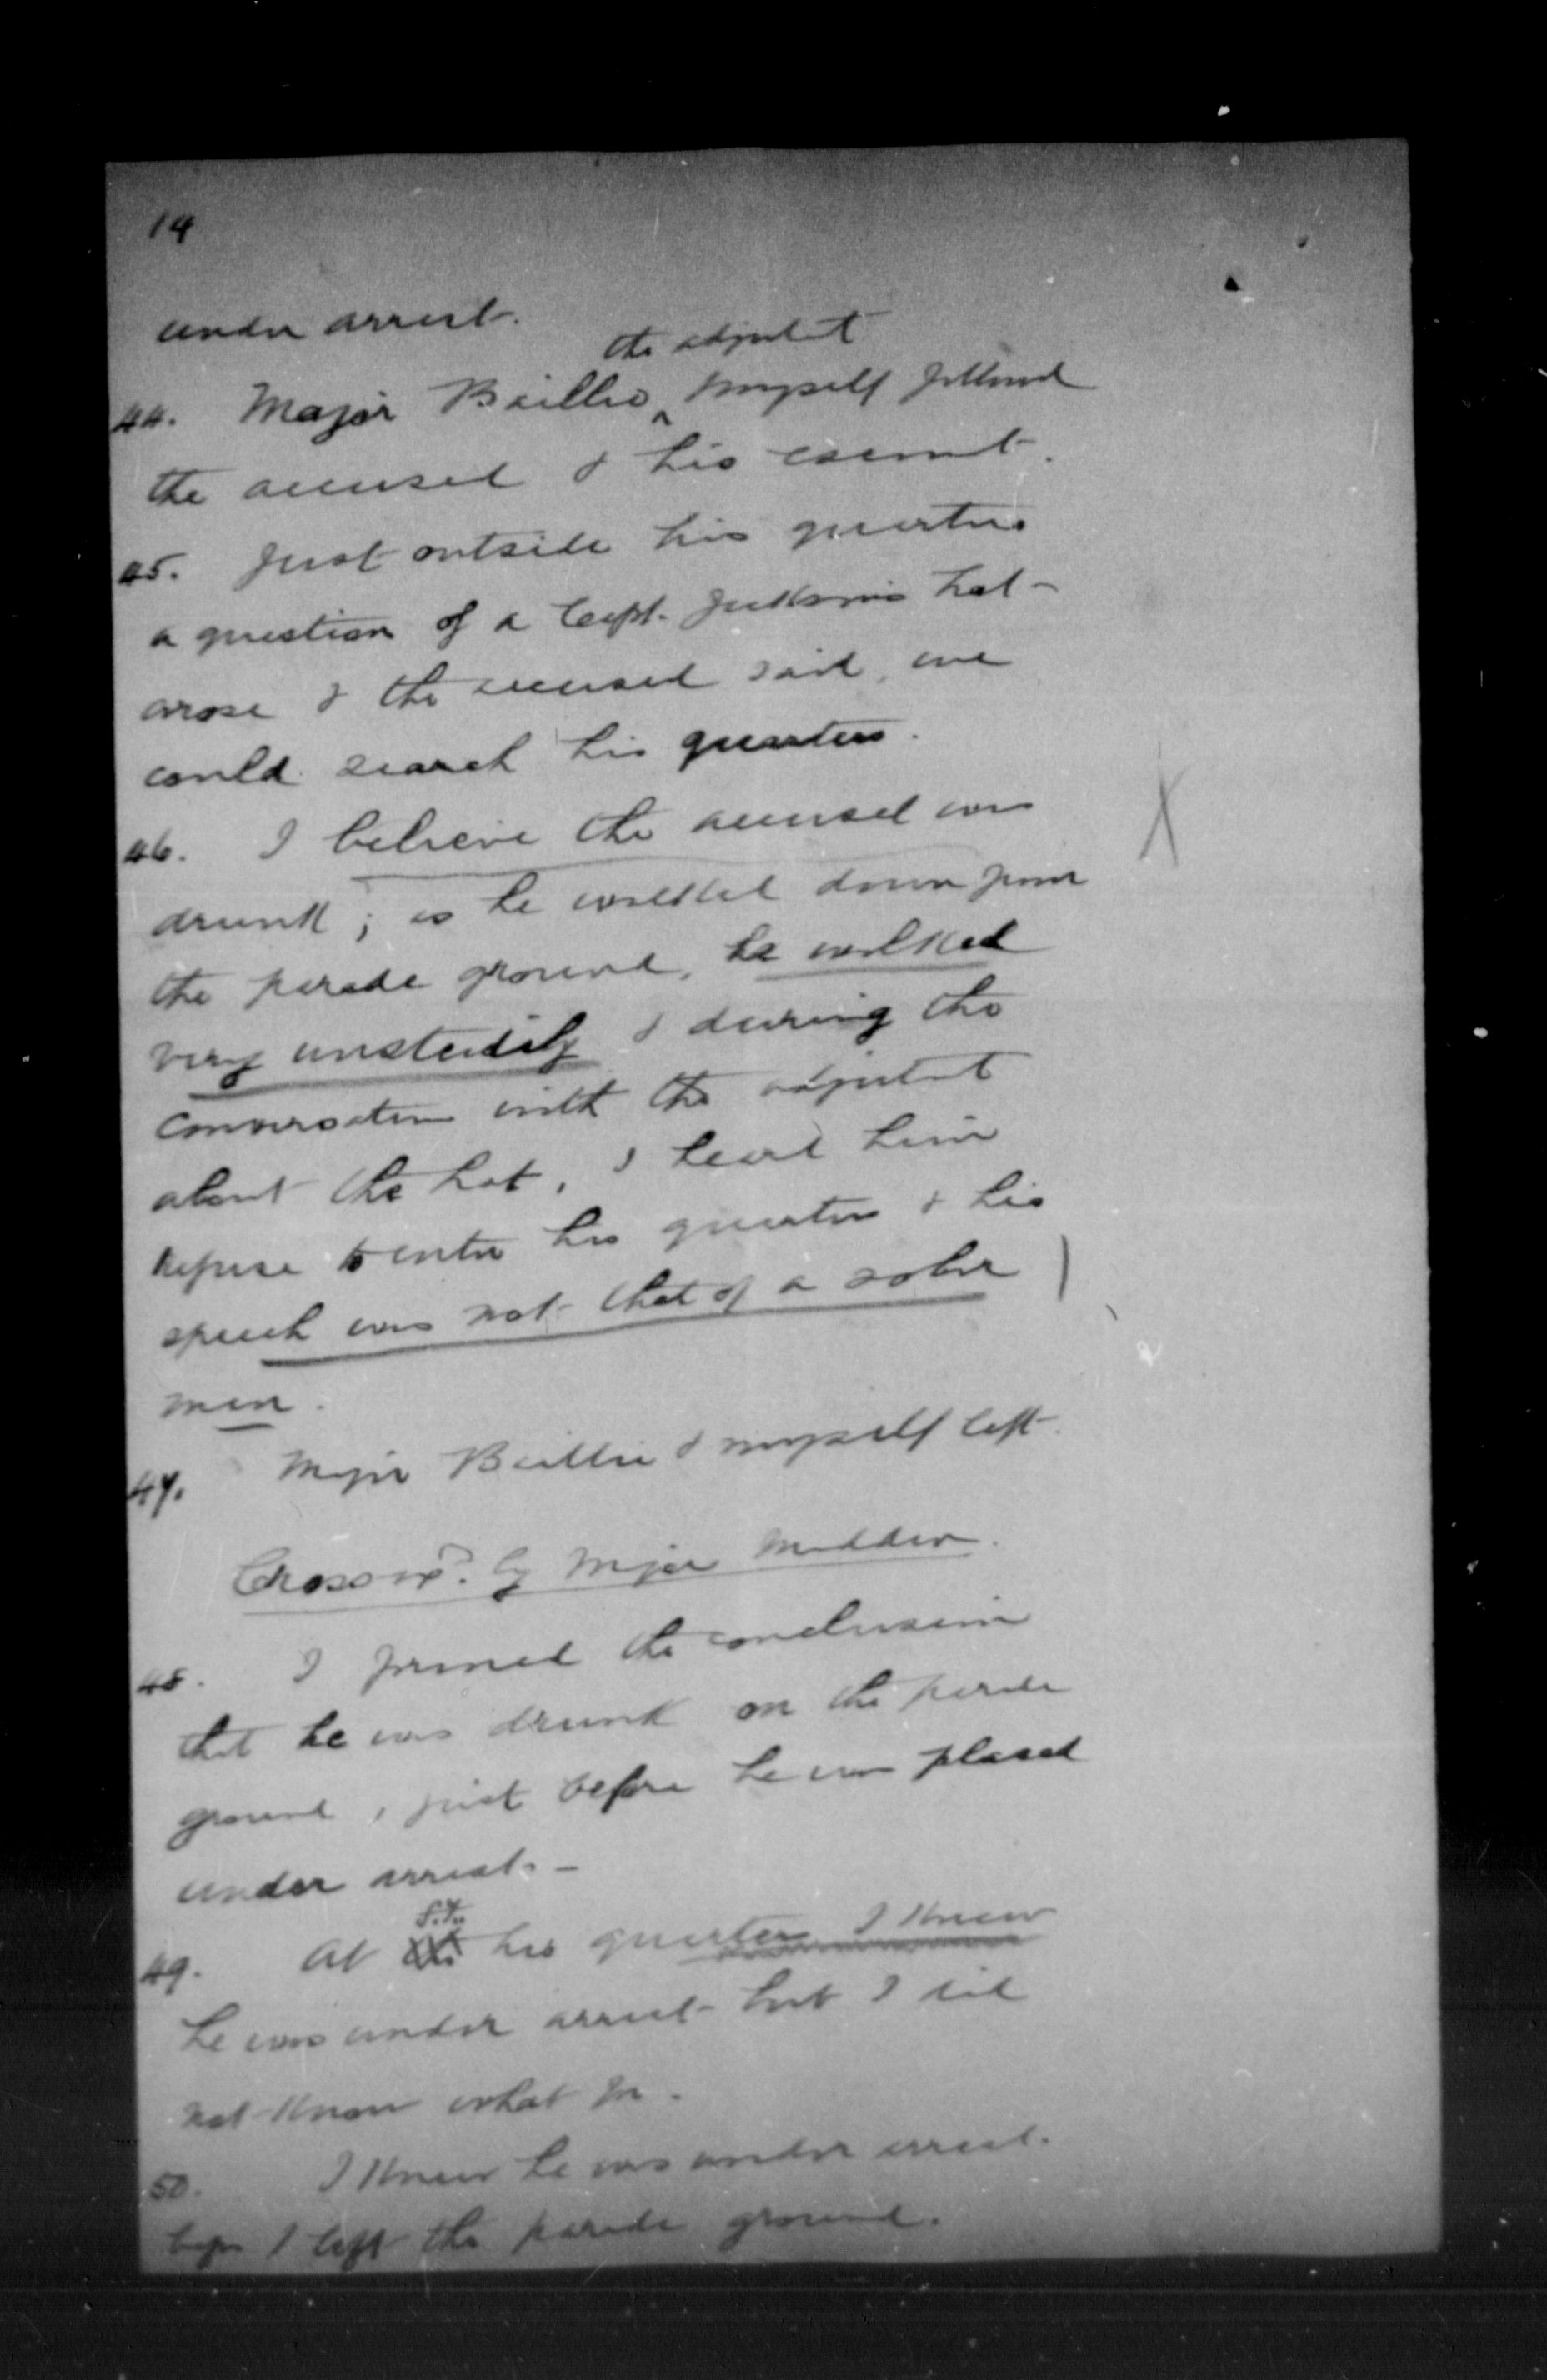 14
under arrest.
the adjutant
44. Major Baillie ^ myself followed
the accused & his escort.
45. Just outside his quarters
a question of a Capt. Jackson's hat -
arose & the accused said, we
could search his quarters.
46. I believe the accused was
drunk; as he walked down from
the parade ground, he walked
very unsteadily & during the
conversation with the adjutant
about the hat, I heard him
refuse to enter his quarters & his
speech was not that of a sober
man.
47. Major Baillie & myself left.
Cross exd. by Major Madden.
48. I formed the conclusion
that he was drunk on the parade
ground, just before he was placed
under arrest. -
49. At his quarters I knew
he was under arrest but I did
not know what for.
50. I knew he was under arrest
before I left the parade ground.